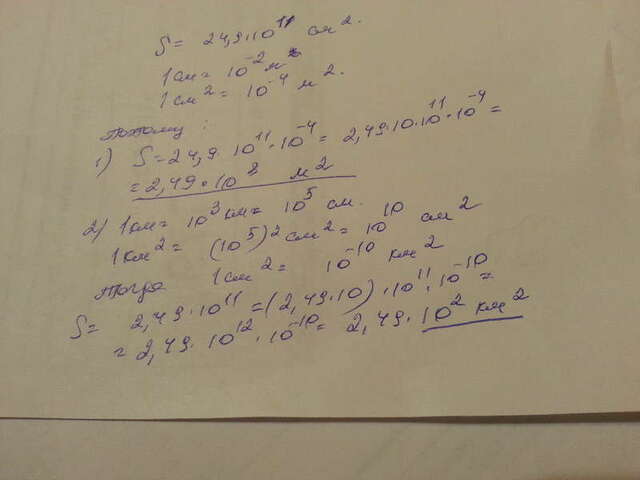 S = 24,9·10¹¹ см².
1см = 10⁻² м
1см² = 10⁻⁴ м².
поэтому:
1) S = 24,9·10¹¹·10⁻⁴ = 2,49·10·10¹¹·10⁻⁴ =
= 2,49·10⁸ м²
2) 1км = 10³ км = 10⁵ см.
1км² = (10⁵)² см² = 10¹⁰ см²
тогда 1см² = 10⁻¹⁰ км²
S = 2,49·10¹¹ = (2,49·10)·10¹¹·10⁻¹⁰ =
= 2,49·10¹²·10⁻¹⁰ = 2,49·10² км²